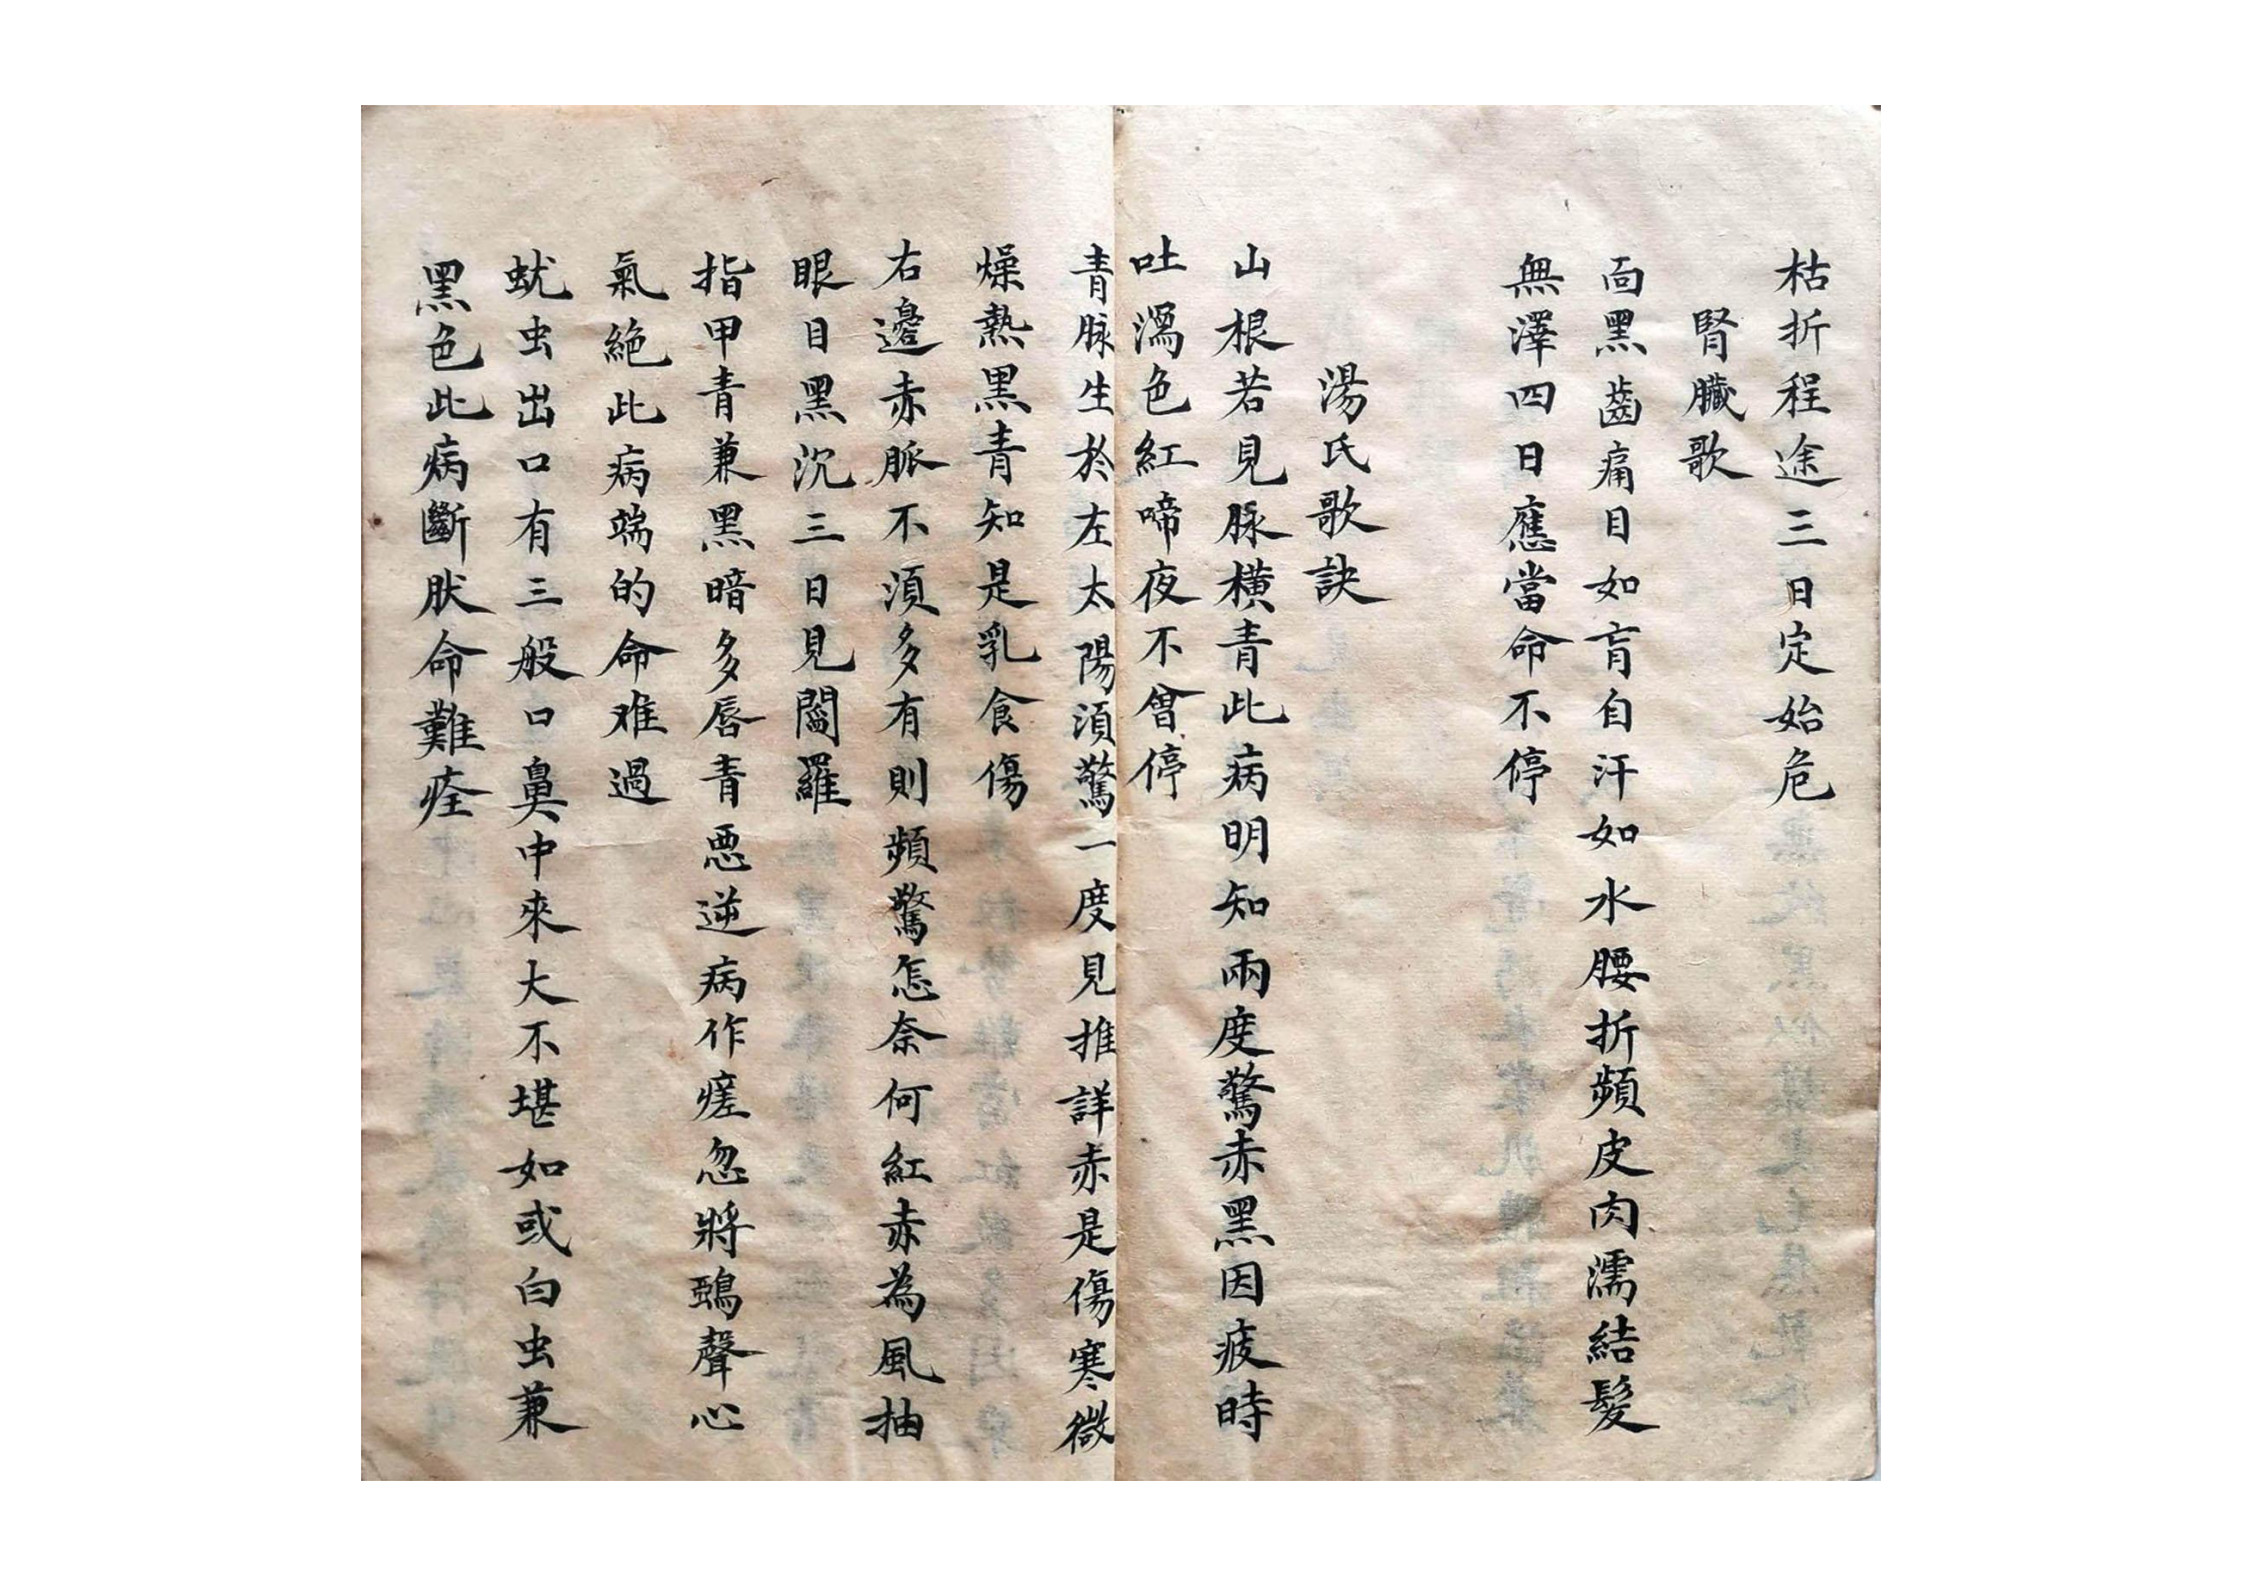 枯折程途三日定始危
腎臟歌
面黑齒痛目如盲自汗如水腰折頻皮肉濡結髮
無澤四日應當命不停
湯氏歌訣
山根若見脉橫青此病明知兩度驚赤黑因疲時
吐瀉色紅啼夜不曾停
青脉生於左太陽須驚一度見推詳赤是傷寒微
燥熱黑青知是乳食傷
右邊赤脈不須多有則頻驚怎奈何紅赤為風抽
眼目黑沉三日見閻羅
指甲青兼黑暗多唇青悪逆病作瘥忽將鵶聲心
氣絕此病端的命难過
蚘虫出口有三般口鼻中來大不堪如或白虫兼
黑色此病斷肰命難痊